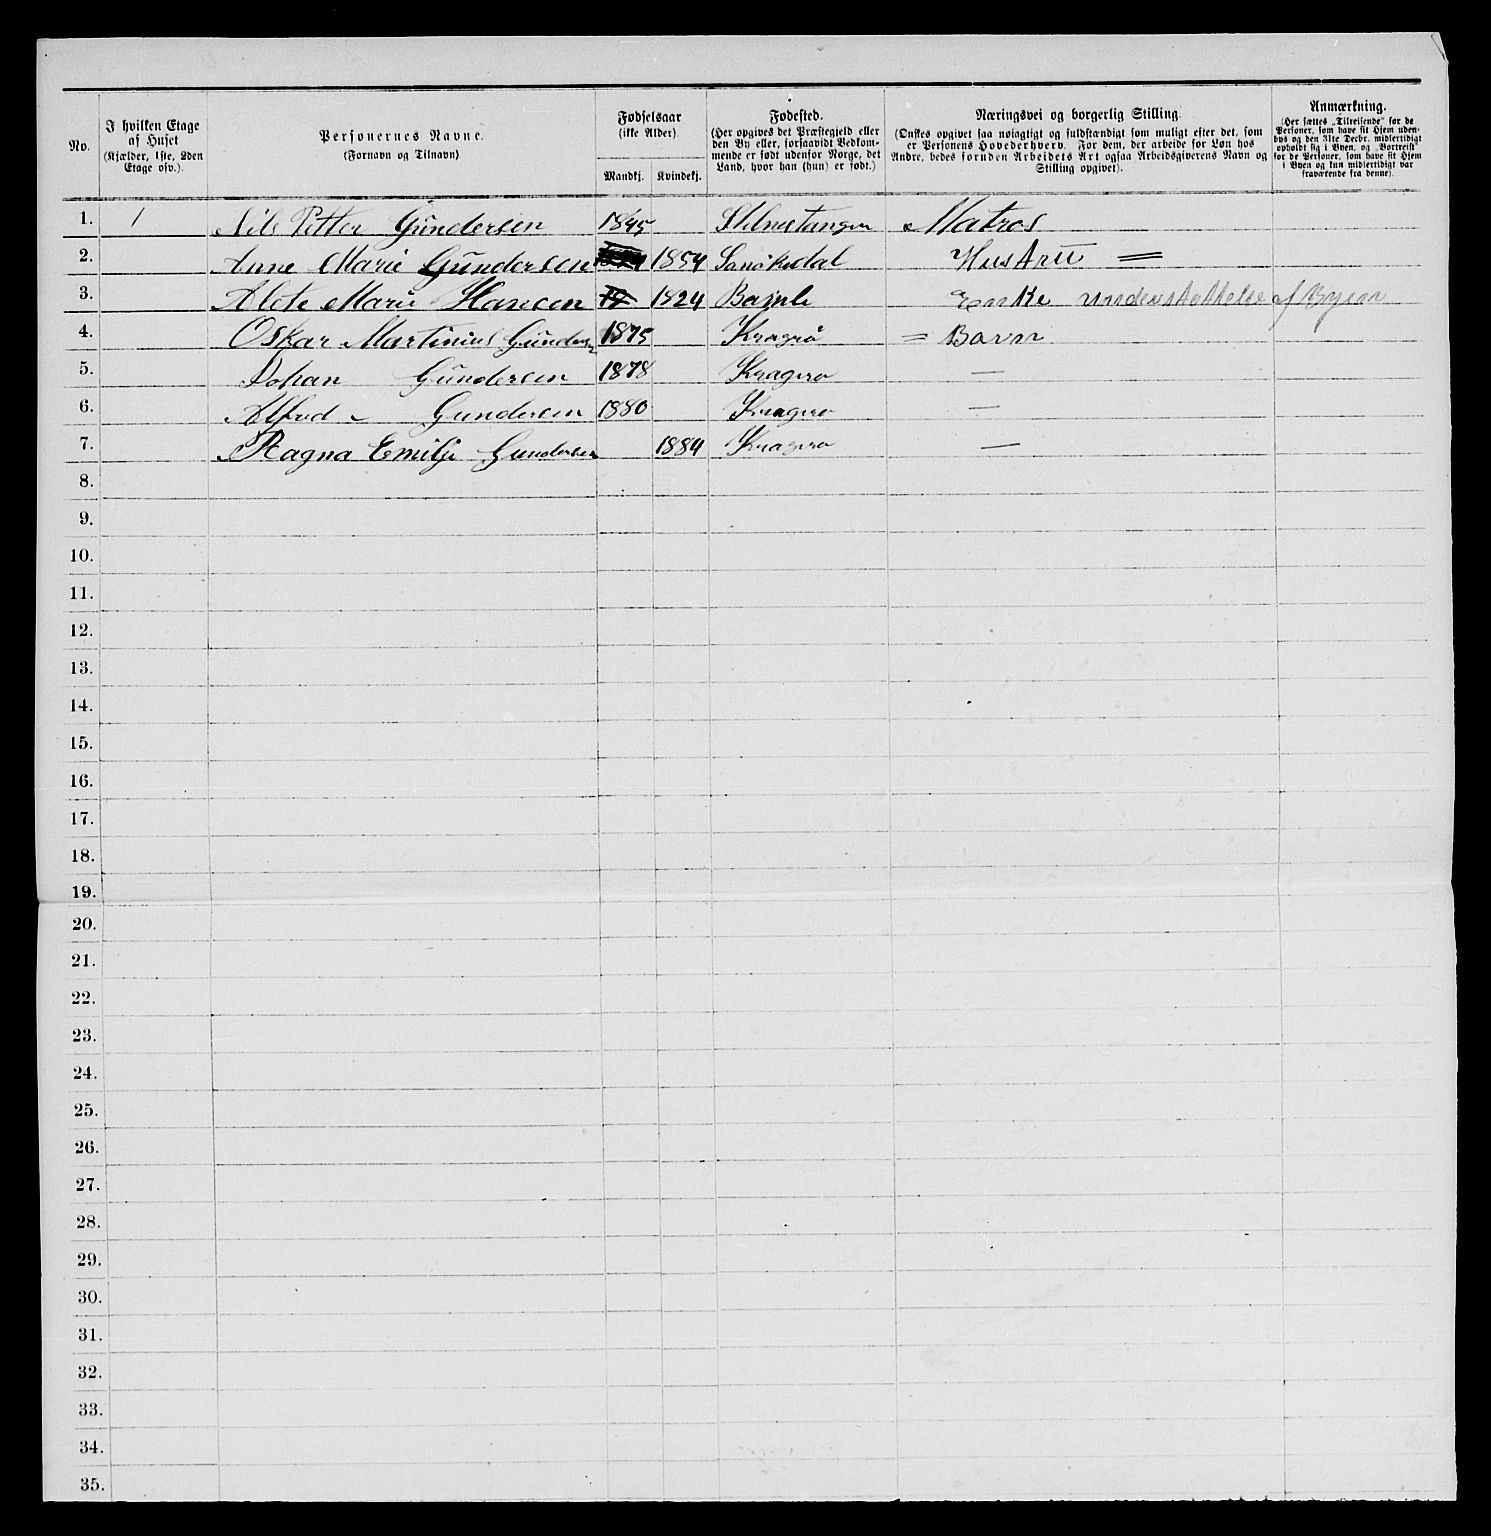 No. I hvilken Etage af Huset (Kjælder, 1ste, 2den Etage osv.). Personernes Navne. (Fornavn og Tilnavn) Fødselsaar (ikke Alder) Mandkj. Kvindekj. Fødested. (Her opgives det Præstegjeld eller den By eller, forsaavidt Vedkommende er født udenfor Norge, det Land, hvor han (hun) er født.) Næringsvei og borgerlig Stilling (Ønskes opgivet saa nøiagtigt og fuldstændigt som muligt efter det, som er Personens Hovederhverv. For dem, der arbeide for Løn hos Andre, bedes foruden Arbeidets Art ogsaa Arbeidsgiverens Navn og Stilling opgivet). Anmærkning. (Her sættes „Tilreisende“ for de Personer, som have sit Hjem udenbys og den 31te Decbr. midlertidigt opholdt sig i Byen, og „Bortreist“ for de Personer, som have sit Hjem i Byen og kun midlertidigt var fraværende fra denne).
1. 1 Nils Petter Gundersen 1845 Matros
2. Anne Marie Gundersen 1854 Sanökedal Hustru =
3. Alete Marie Hansen 1824 Bamle Enke understöttelse af Byen
4. Oskar Martinius Gundersen 1875 Kragrö = Barn
5. Johan Gundersen 1878 Kragerø —
6. Alfred - Gundersen 1880 Kragerø —
7. Ragna Emilje Gundersen 1884 Kragerø —
8.
9.
10.
11.
12.
13.
14.
15.
16.
17.
18.
19.
20.
21.
22.
23.
24.
25.
26.
27.
28.
29.
30.
31.
32.
33.
34.
35.